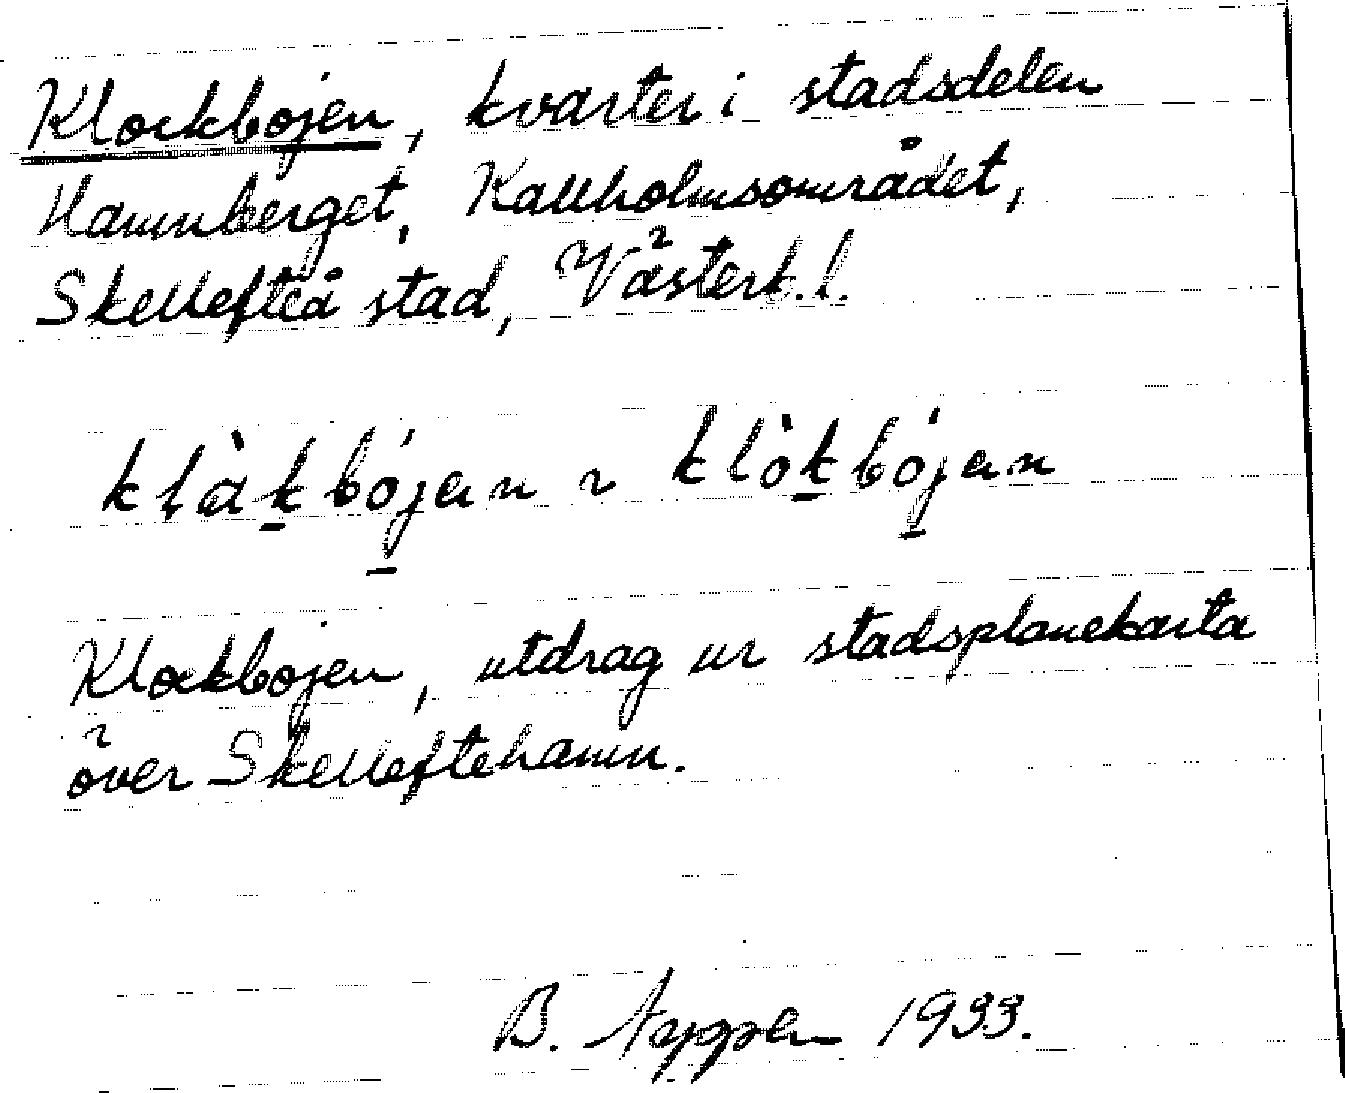 Klockbojen, kvarter i stadsdelen
Hamnberget, Kallholmsområdet,
Skellefteå stad, Västerb. l.
klàkbójen ~ klòkbójen
Klockbojen, utdrag ur stadsplanekarta
över Skelleftehamn.
B. 1993.